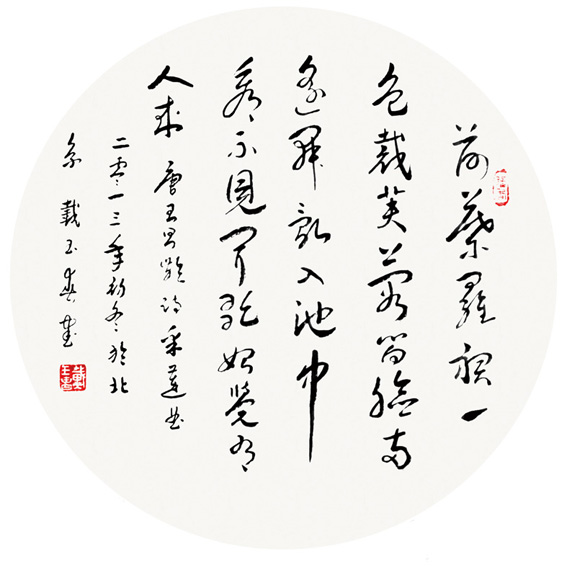 荷葉羅裙一
色裁芙蓉向臉兩
邊開亂入池中
看不見聞歌始覺有
人來 唐王昌齡詩采蓮曲
二零一三年初冬於北
京 戴玉書